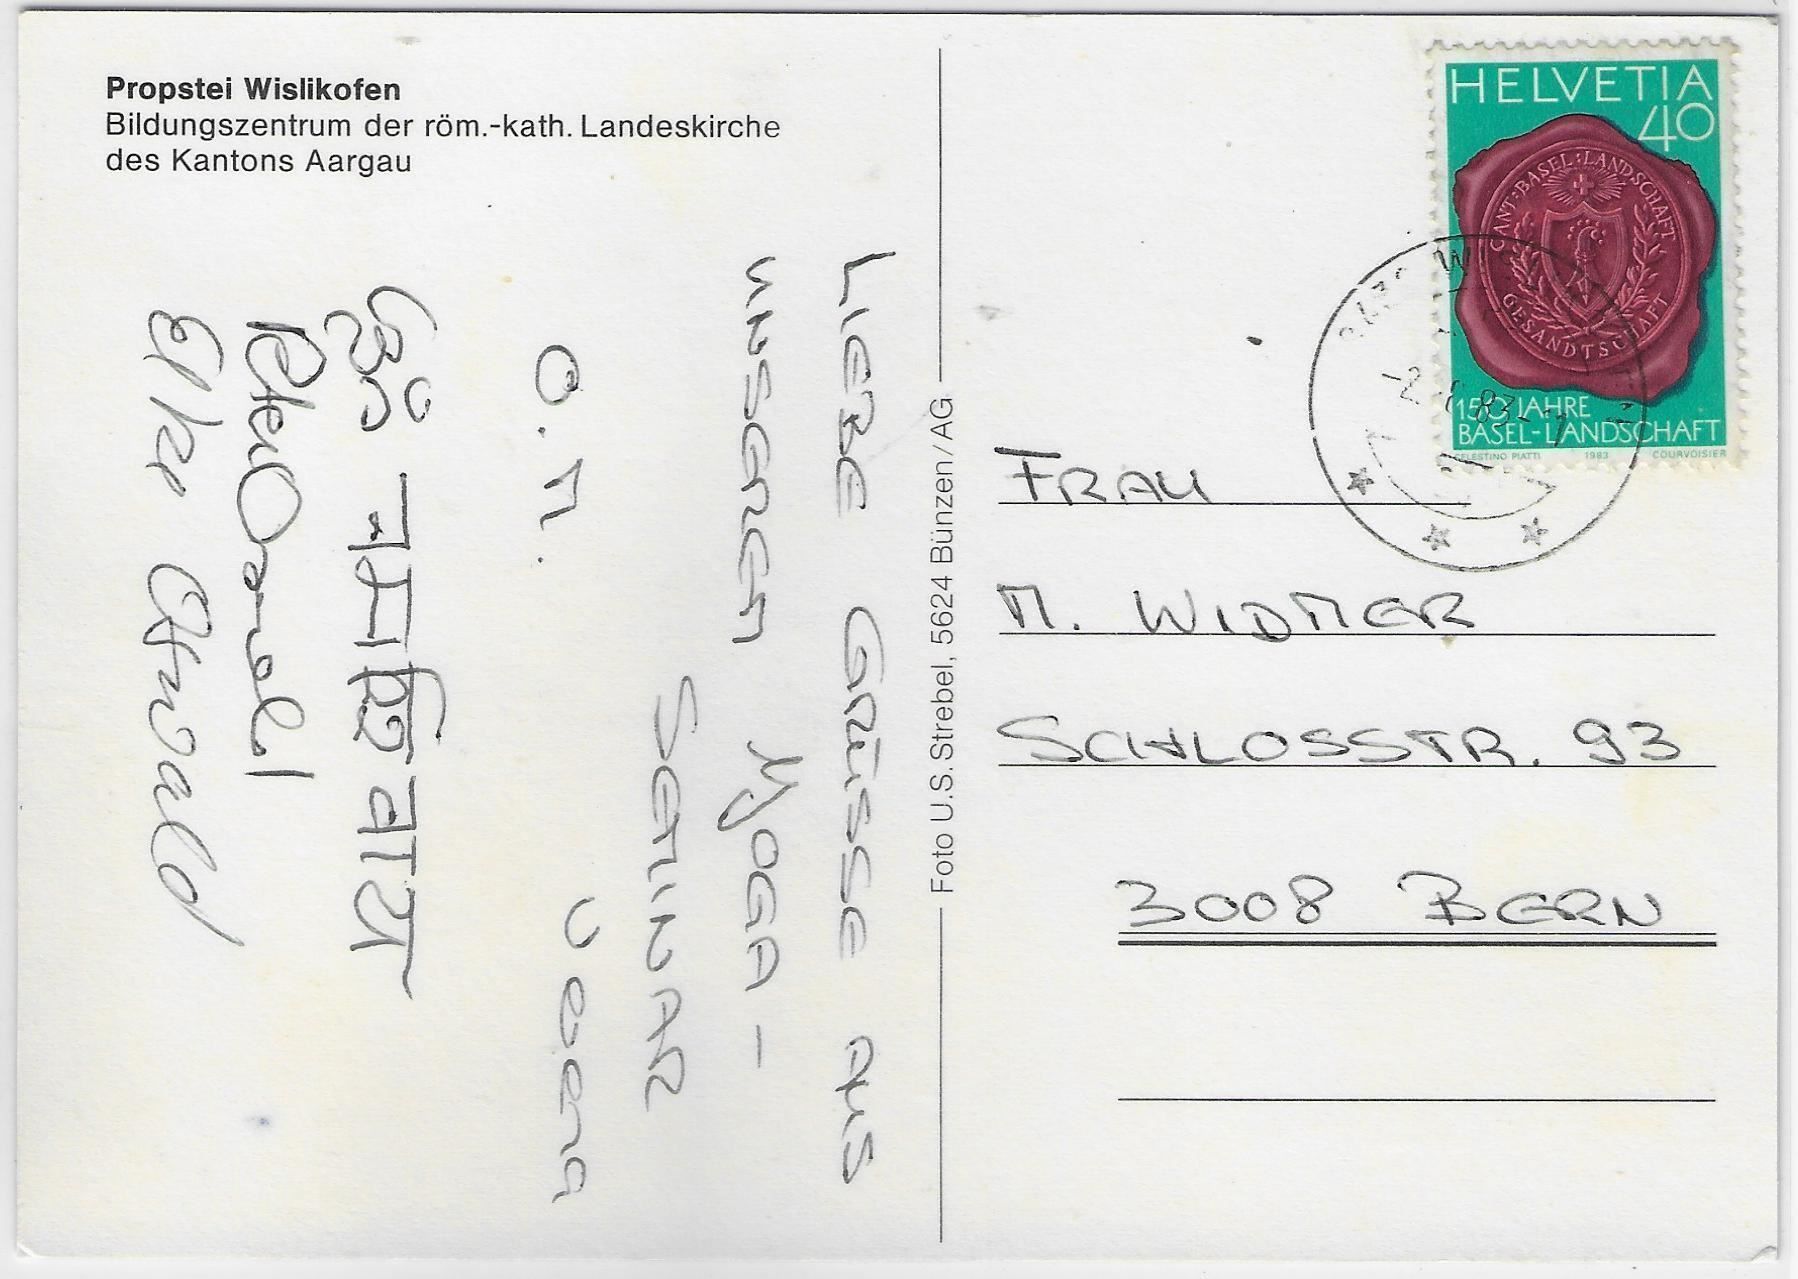 Propstei Wislikofen
Bildungszentrum der röm.-kath. Landeskirche
des Kantons Aargau
LIEBE GRÜSSE AUS
UNSEREM YOGA-
SEMINAR
O.M. Verena
ॐ नमः शिवाय
Elke Oswald
Foto U.S. Strebel, 5624 Bünzen/AG
HELVETIA
40
CANT: BASEL: LANDSCHAFT
GESANDTSCHAFT
150 JAHRE
BASEL-LANDSCHAFT
CELESTINO PIATTI 1983 COURVOISIER
FRAU
M. WIDMER
SCHLOSSSTR. 93
3008 BERN